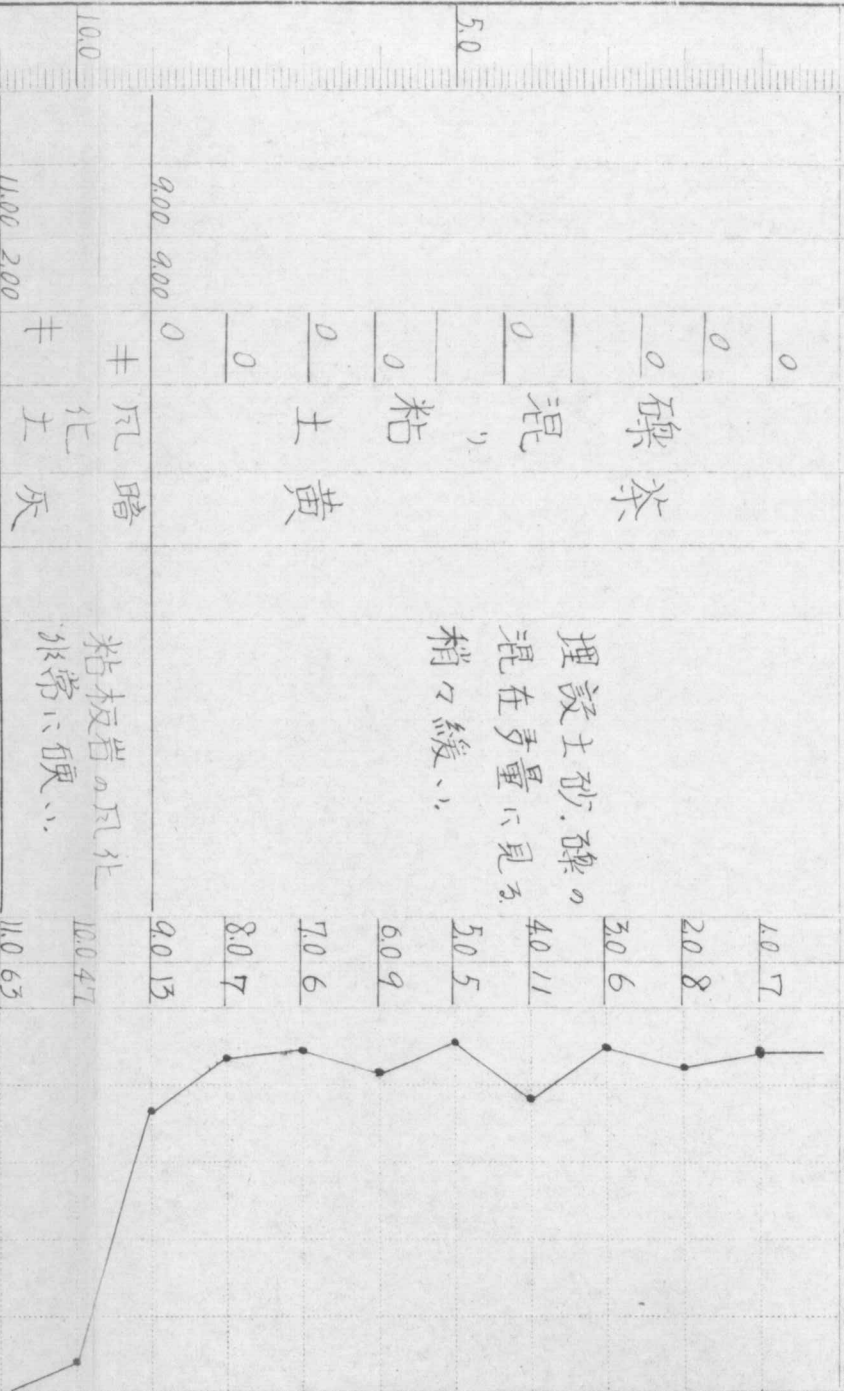 5.0
10.0
9.00 9.00
11.00 2.00
0
0
0
0
0
0
0
0
礫混り粘土
茶黄
埋設土砂.礫の
混在多量に見る
稍々緩い.
風化土
暗灰
粘板岩の風化
非常に硬い.
1.0 7
2.0 8
3.0 6
4.0 11
5.0 5
6.0 9
7.0 6
8.0 7
9.0 13
10.0 47
11.0 63